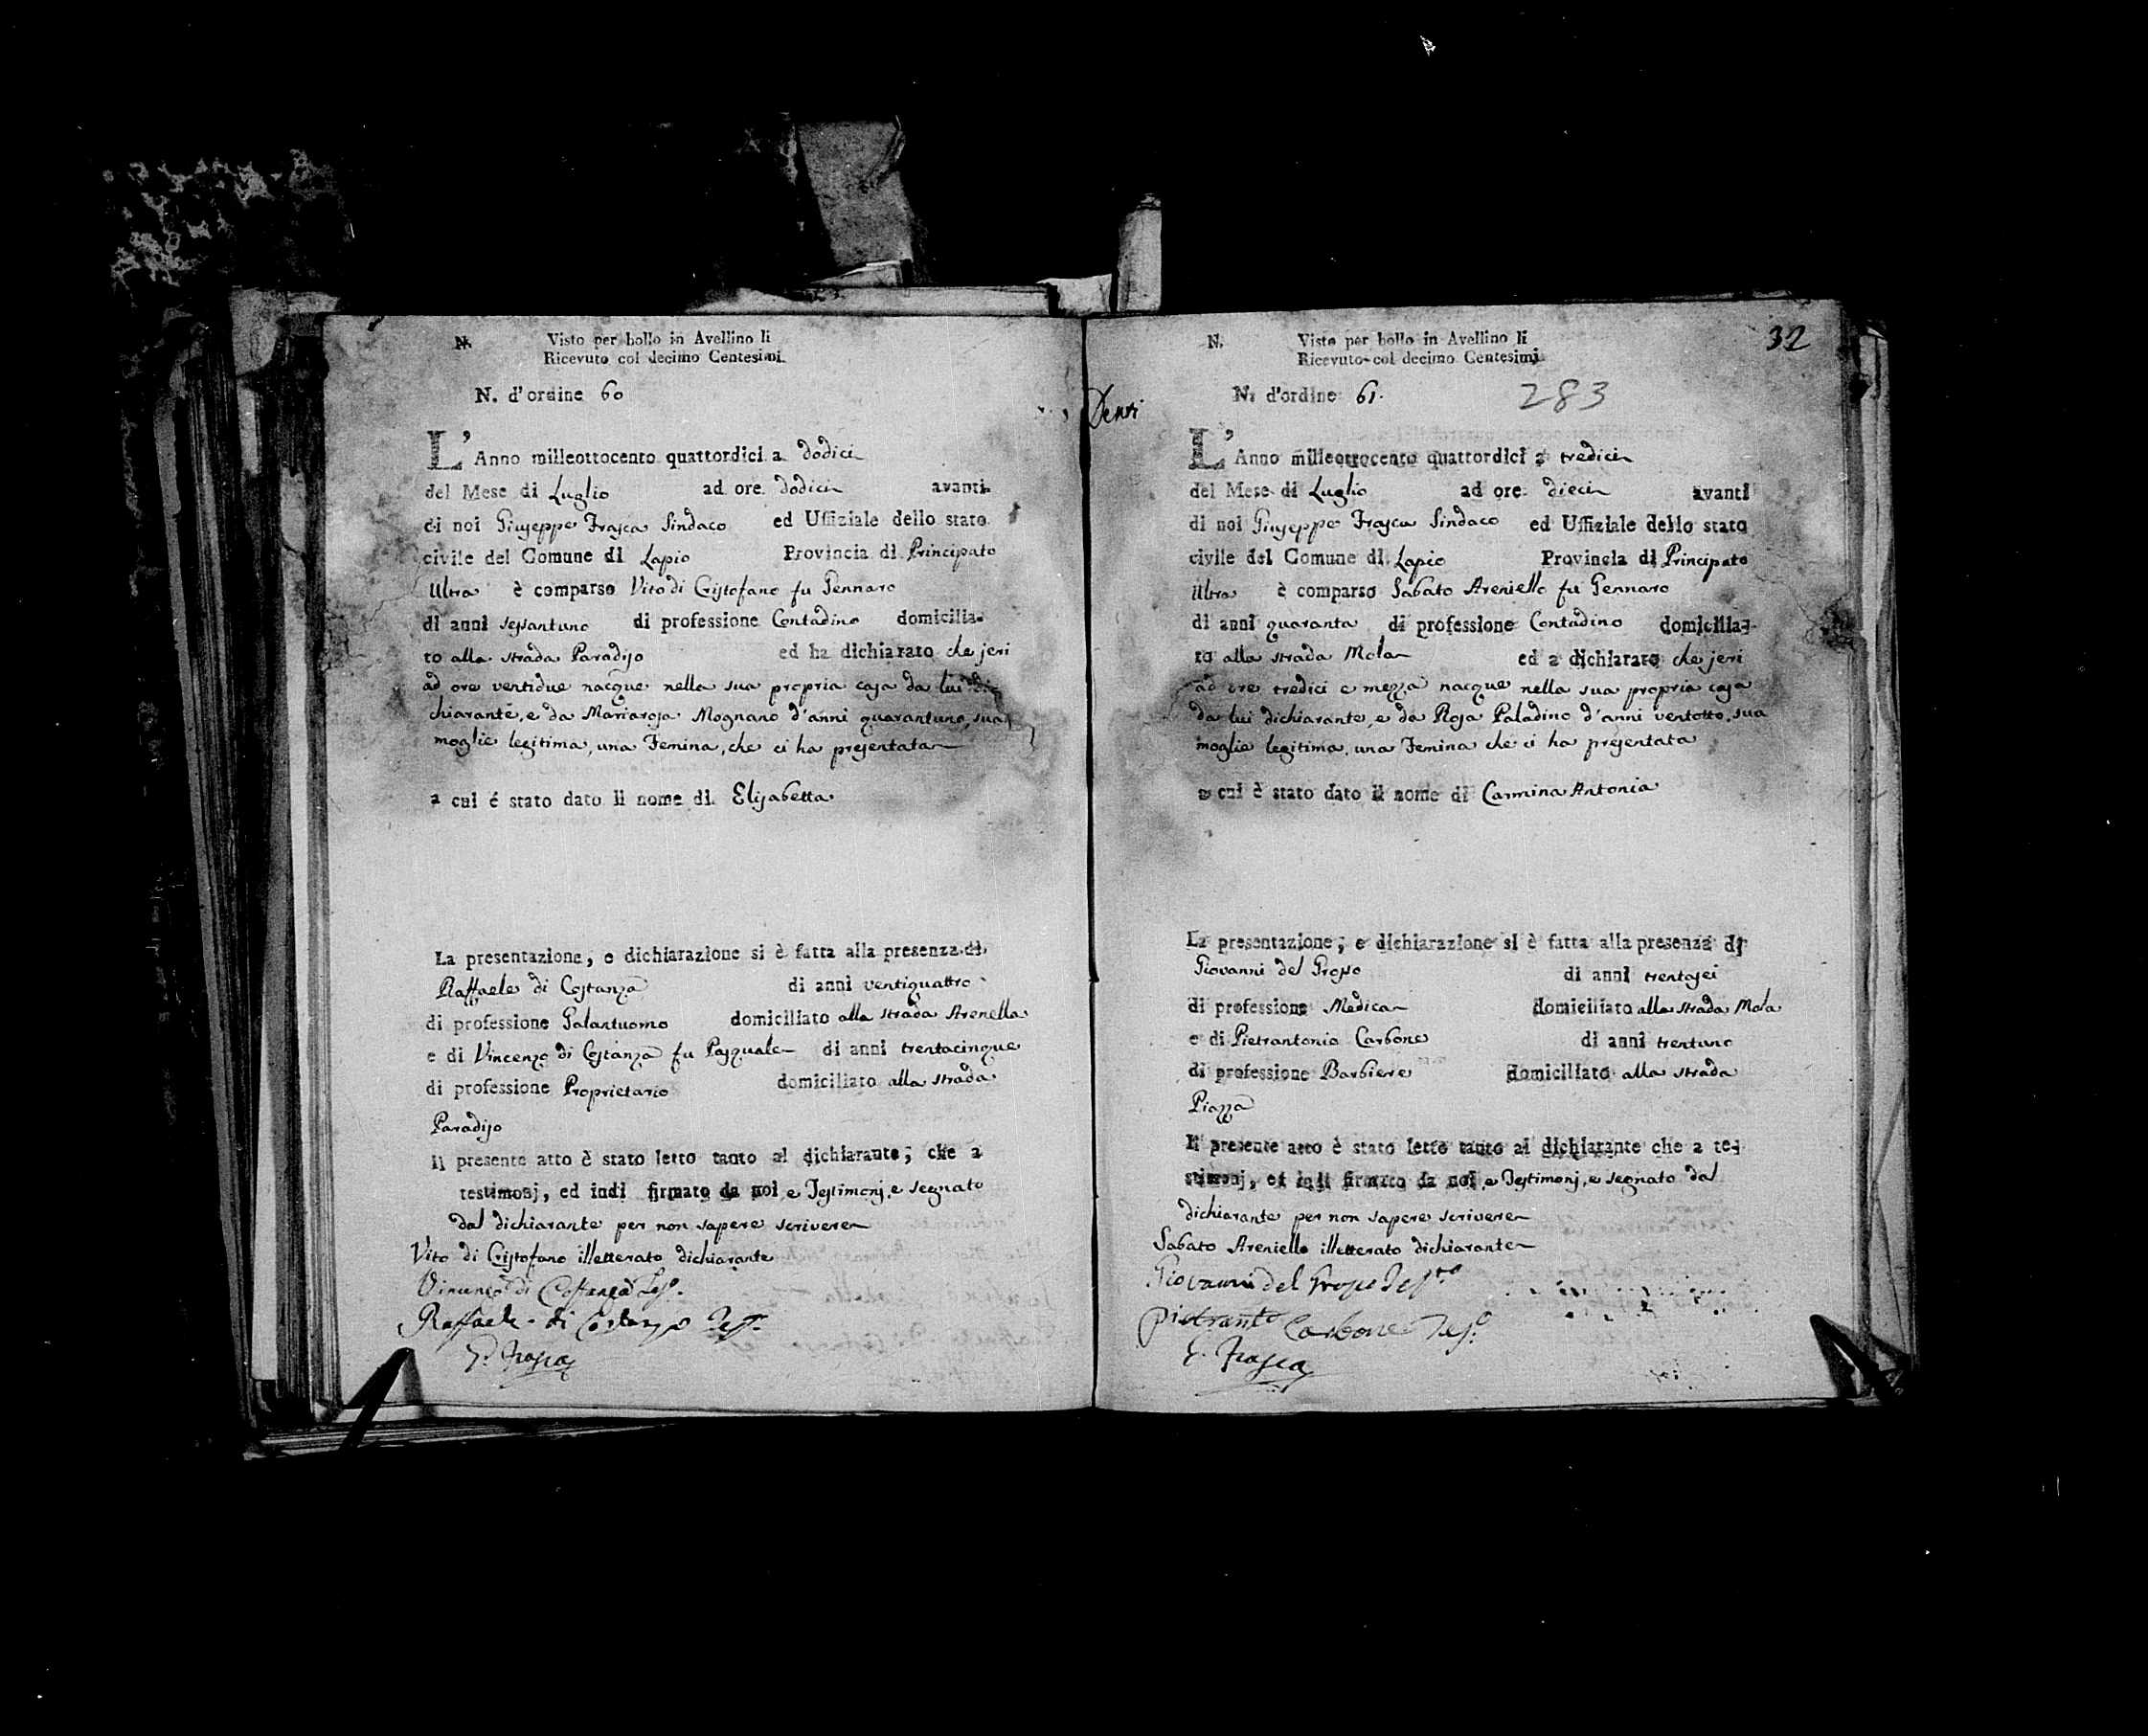 N. Visto per bollo in Avellino li
Ricevuto col decimo Centesimi
N. d'ordine 60
L'Anno milleottocento quattordici a dodici
del Mese di Luglio ad ore dodici avanti
di noi Giuseppe Frasca Sindaco ed Uffiziale dello stato
civile del Comune di Lapio Provincia di Principato
Ultra è comparso Vito di Cristofano fu Gennaro
di anni sessantuno di professione Contadino domicilia-
to alla strada Paradiso ed ha dichiarato che jeri
ad ore ventidue nacque nella sua propria casa da lui di
chiarante, e da Mariarosa Mognano d'anni quarantuno, sua
moglie legitima, una Femina, che ci ha presentata
a cui é stato dato il nome di Elisabetta
La presentazione, e dichiarazione si è fatta alla presenza di
Raffaele di Costanza di anni ventiquattro
di professione Galantuomo domiciliato alla strada Arenella
e di Vincenzo di Costanza fu Pasquale di anni trentacinque
di professione Proprietario domiciliato alla strada
Paradiso
Il presente atto è stato letto tanto al dichiarante, che a
testimonj, ed indi firmato da noi, e Testimonj, e segnato
dal dichiarante per non sapere scrivere
Vito di Cristofano illetterato dichiarante
Vincenzo di Costanza Tes°.
Raffaele di Costanza Tes°.
G. Frasca
32
N. Visto per bollo in Avellino li
Ricevuto col decimo Centesimi
N. d'ordine 61. 283
L'Anno milleottocento quattordici a tredici
del Mese di Luglio ad ore dieci avanti
di noi Giuseppe Frasca Sindaco ed Uffiziale dello stato
civile del Comune di Lapio Provincia di Principato
Ultra è comparso Sabato Areniello fu Gennaro
di anni quaranta di professione Contadino domicilia-
to alla strada Mola ed a dichiarato che jeri
ad ore tredici e mezza nacque nella sua propria casa
da lui dichiarante, e da Rosa Paladino d'anni ventotto, sua
moglie legitima, una Femina che ci ha presentata
a cui è stato dato il nome di Carmina Antonia
La presentazione, e dichiarazione si è fatta alla presenza di
Giovanni del Grosso di anni trentasei
di professione Medica domiciliato alla strada Mola
e di Pietrantonio Carbone di anni trentuno
di professione Barbiere domiciliato alla strada
Piazza
Il presente atto è stato letto tanto al dichiarante che a te-
stimonj, ed indi firmato da noi, e Testimonj, e segnato dal
dichiarante per non sapere scrivere
Sabato Areniello illetterato dichiarante
Giovanni del Grosso Tes^to
Pietranto Carbone Tes°
G. Frasca